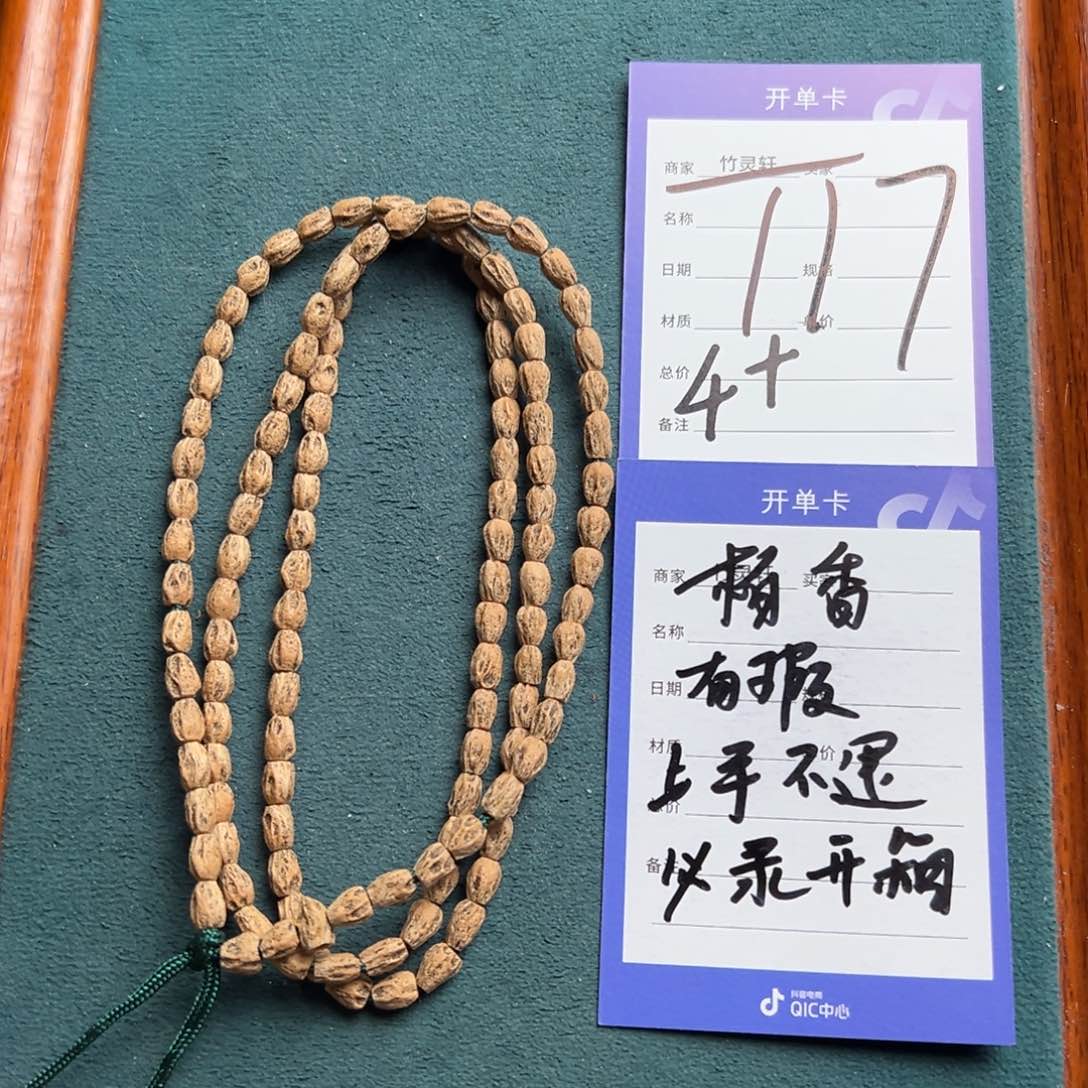 开单卡
商家 竹灵轩 买家
名称
日期 规格
材质 单价
总价 4+
备注
开单卡
商家 竹灵轩 买家
名称
日期
材质 单价
总价
备注
有瑕
上手不退
必录开箱
抖音电商
QIC中心